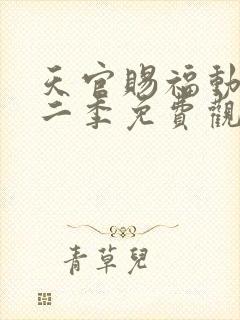 天官賜福動
二季免費觀
青草兒